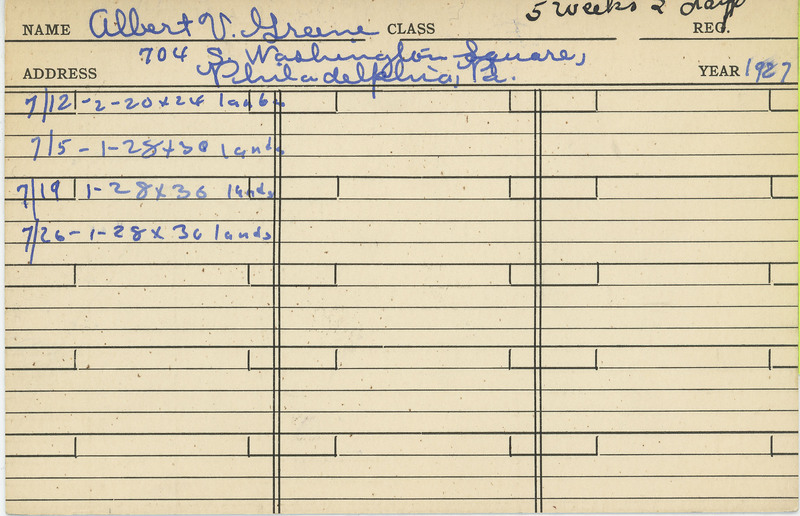 5 weeks 2 days
NAME Albert V. Greene CLASS REG.
704 S. Washington Square,
ADDRESS Philadelphia, Pa. YEAR 1927
7/12 -2-20x24 lands
7/5 - 1-28x30 lands
7/19 1-28x36 lands
7/26 - 1-28 x 30 lands